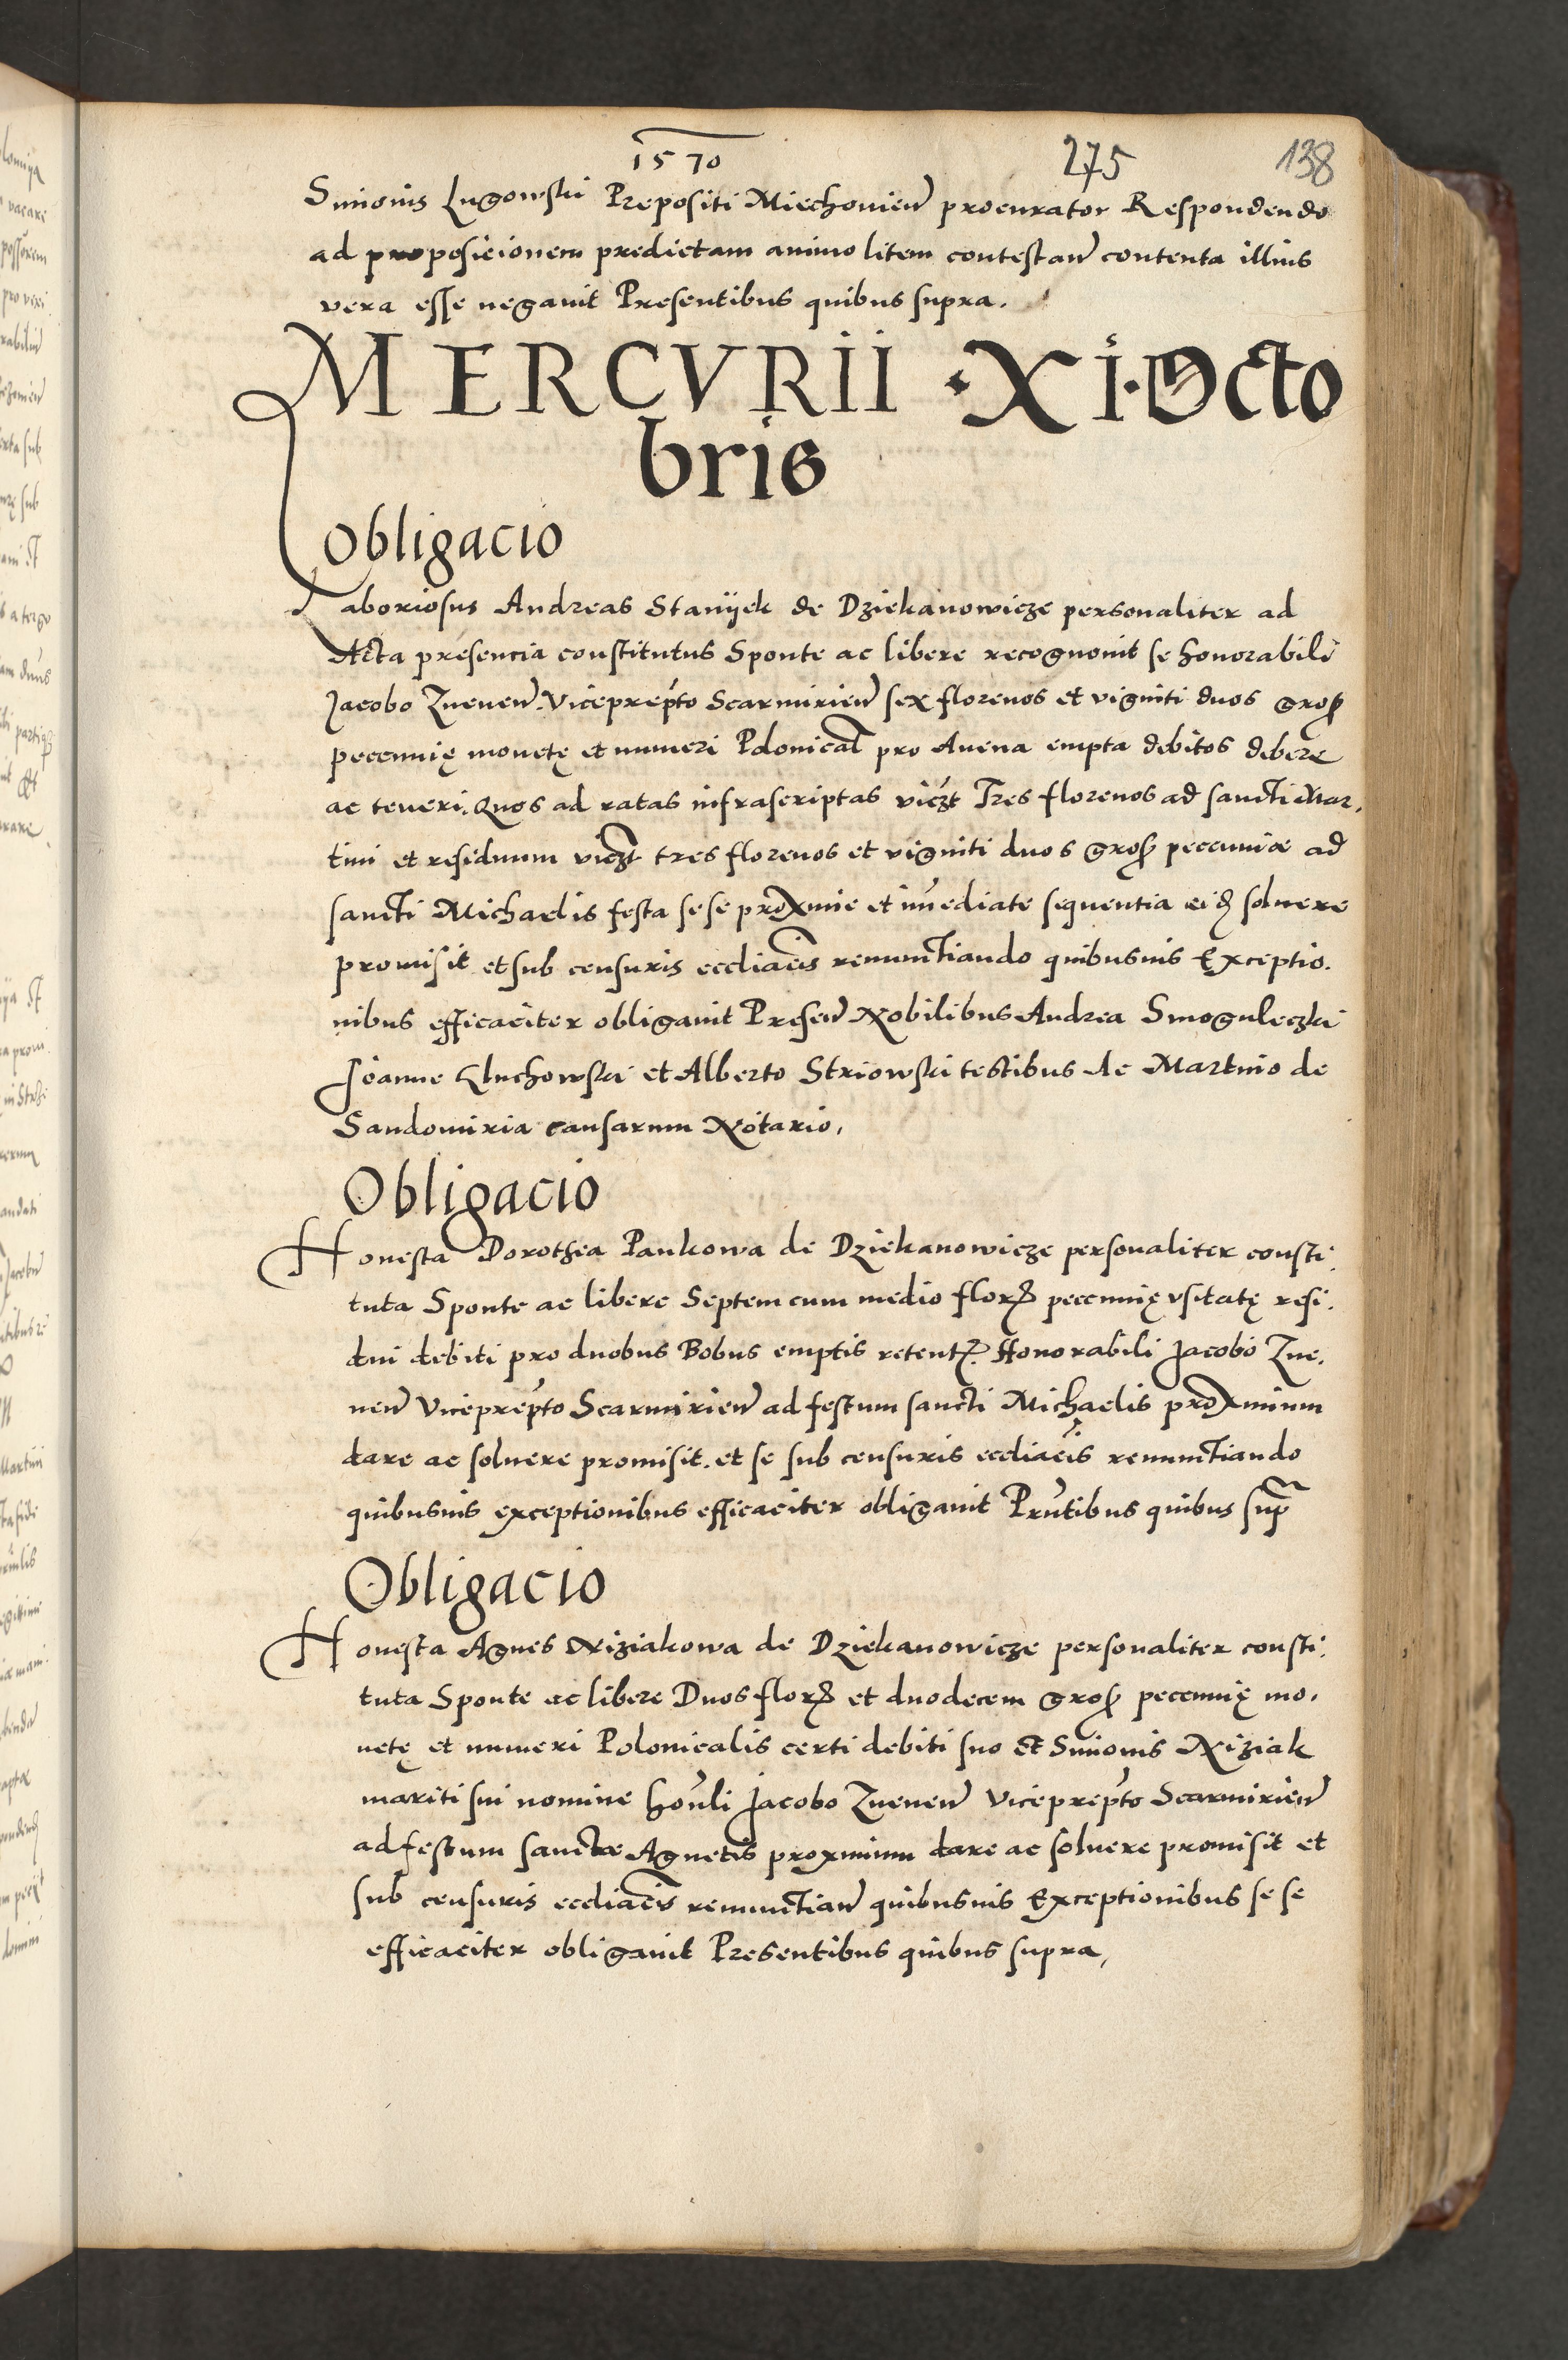 1570
275
138
Simonis Lugowski Prepositi Miechovien procurator Respondendo
ad proposicionem predictam animo litem contestan contenta illius
vera esse negavit Presentibus quibus supra.
MERCVRII · XI · Octo
bris
Obligacio
Laboriosus Andreas Stanijek de Dziekanowicze personaliter ad
Acta presencia constitutus Sponte ac libere recognovit se honorabili
Jacobo Znenen. Viceprepto Scarmirien sex florenos et viginti duos gros
pecunnię monetę et numeri Polonical pro Avena empta debitos debere
ac teneri. Quos ad ratas infrascriptas viczt Tres florenos ad sancti Mar,
tini et residuum viczt tres florenos et viginti duos gros pecuniæ ad
sancti Michaelis festa sese proxime et imediate sequentia eid solvere
promisit et sub censuris eccliacis renunctiando quibusvis Exceptio.
nibus efficaciter obligavit Presen Nobilibus Andrea Smoguleczki
Joanne Chuchowski et Alberto Striowski testibus de Martino de
Sandomiria causarum Notario,
Obligacio
Honesta Dorothea Pankowa de Dziekanowicze personaliter consti,
tuta Sponte ac libere Septem cum medio flor pecunnię usitatę resi,
dui debiti pro duobus Bobus emptis retent. Honorabili Jacobo Zne,
nen Viceprepto Scarmirien ad festum sancti Michaelis proximum
dare ac solvere promisit. et se sub censuris eccliacis renunctiando
quibusvis exceptionibus efficaciter obligavit Prntibus quibus supr
Obligacio
Honesta Agnes Niziakowa de Dziekanowicze personaliter consti,
tuta Sponte ac libere Duos flor et duodecem gros pecunnię mo,
netę et numeri Polonicalis certi debiti suo et Simonis Niziak
mariti sui nomine honli Jacobo Znenen Viceprepto Scarmirien
ad festum sanctæ Agnetis proximum dare ac solvere promisit et
sub censuris eccliacis renunctian quibusvis Exceptionibus se se
efficaciter obligavit Presentibus quibus supra,